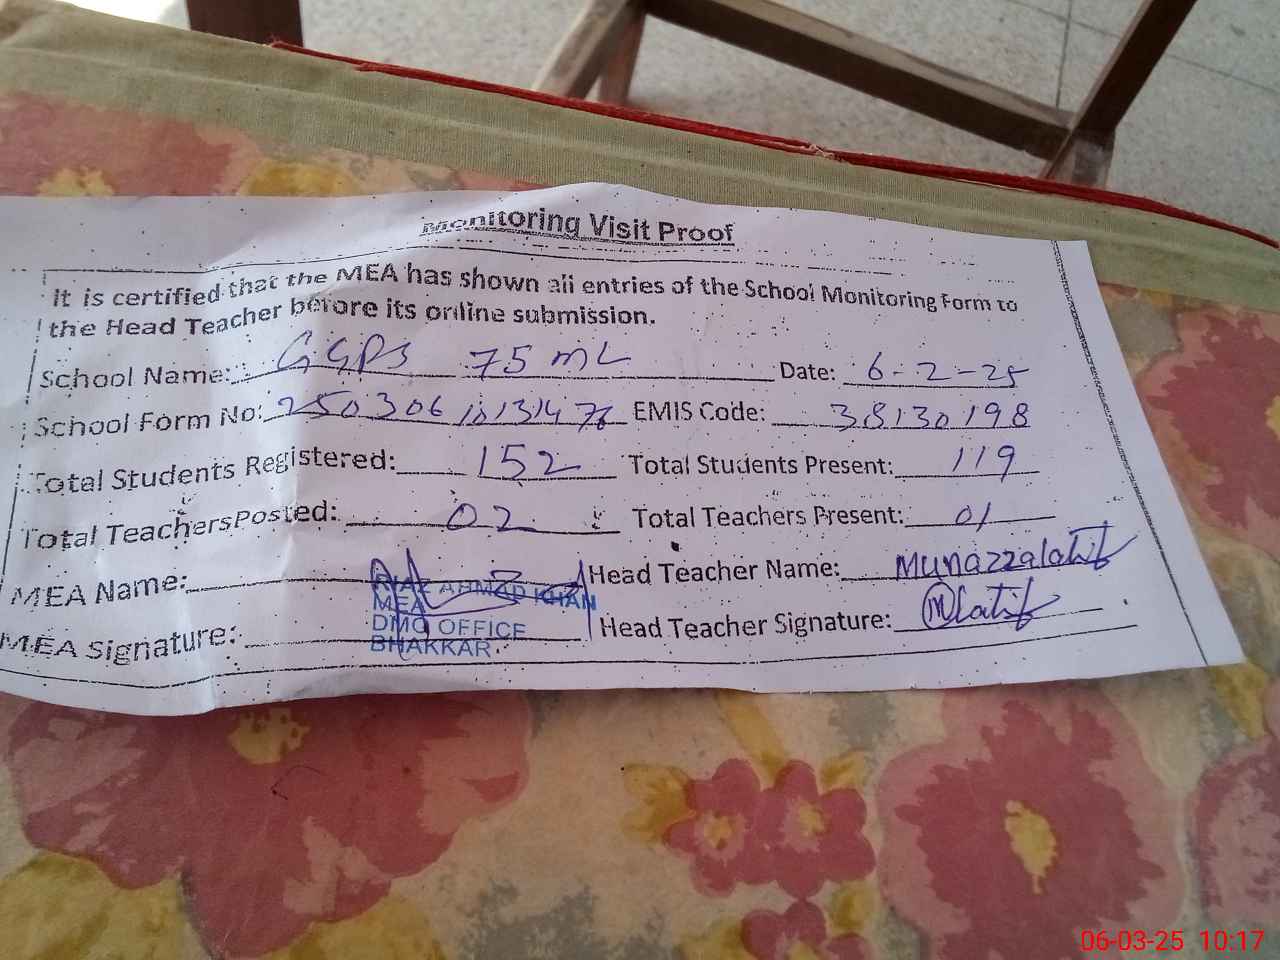 Monitoring Visit Proof
It is certified that the MEA has shown all entries of the School Monitoring Form to
the Head Teacher before its online submission.
School Name: GGPS 75 ML Date: 6-2-25
School Form No: 250306 EMIS Code: 38130198
Total Students Registered: 152 Total Students Present: 119
Total Teachers Posted: 02 Total Teachers Present: 01
MEA Name: RIAZ AHMAD KHAN Head Teacher Name: Munazzalatif
MEA
MEA Signature: DMO OFFICE Head Teacher Signature: MLatif
BHAKKAR
06-03-25 10:17